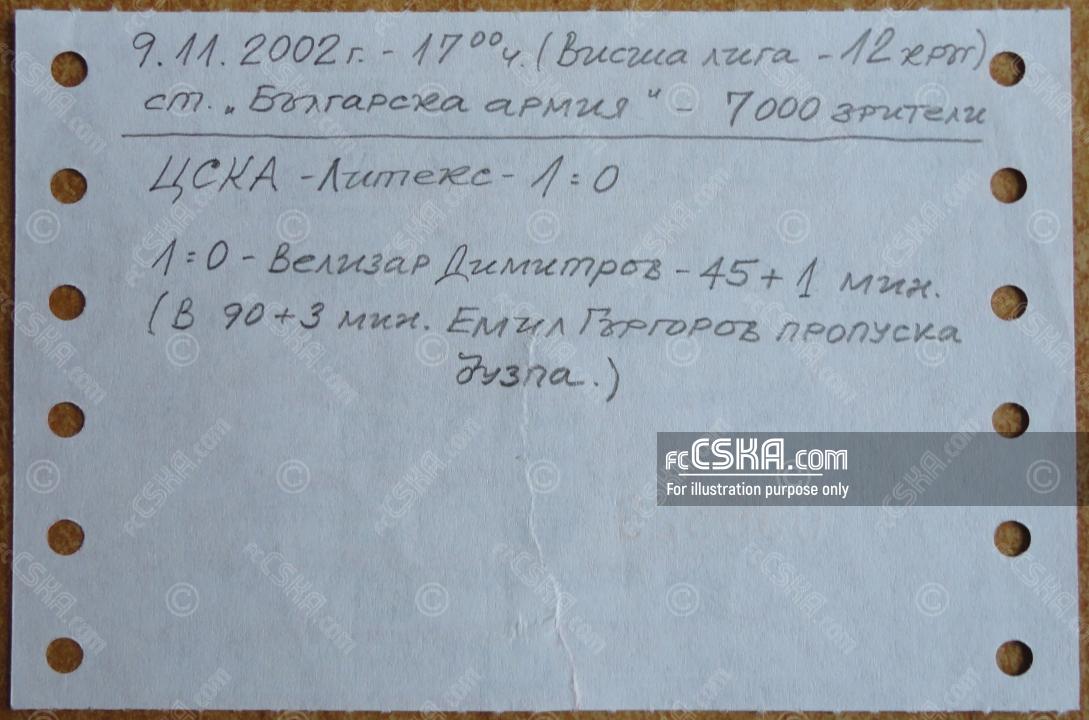 9.11.2002 г. - 17⁰⁰ ч. (Висша лига - 12 кръг)
ст. „Българска армия" - 7000 зрители
ЦСКА - Литекс - 1:0
1:0 - Велизар Димитров - 45+1 мин.
(В 90+3 мин. Емил Гъргоров пропуска
дузпа.)
fcCSKA.com
For illustration purpose only